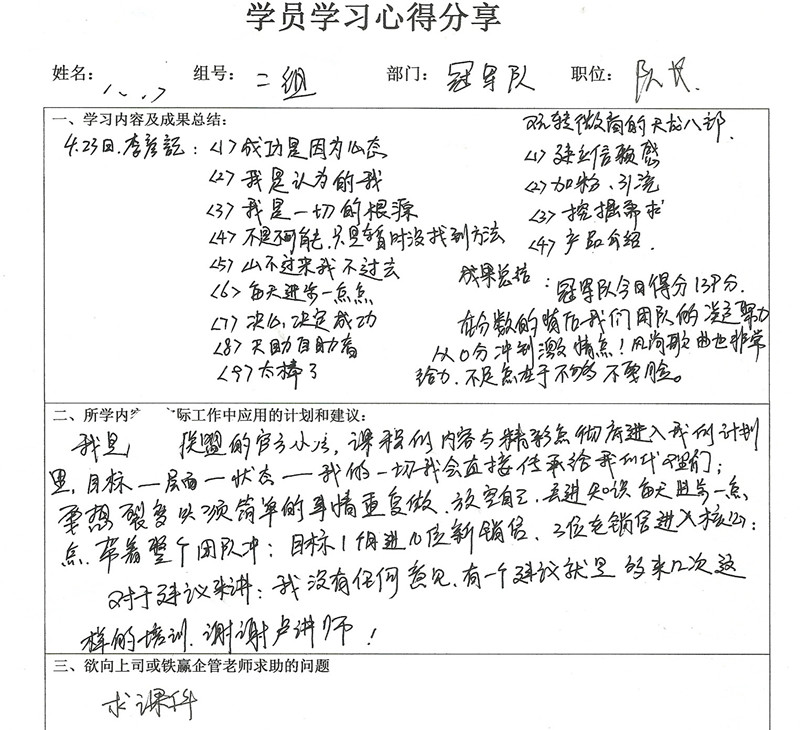 学员学习心得分享
姓名: 组号: 二组 部门: 冠军队 职位: 队长.
一、学习内容及成果总结:
4.23日.李彦 : <1> 成功是因为心态
<2> 我是认为的我
<3> 我是一切的根源
<4> 不是不可能,只是暂时没找到方法
<5> 山不过来我不过去
<6> 每天进步一点点
<7> 决心,决定成功
<8> 天助自助者
<9> 太棒了
玩转微商的天龙八部.
<1> 建立信赖感
<2> 加粉、引流
<3> 挖掘需求
<4> 产品介绍.
成果总结: 冠军队今日得分139分.
在分数的背后我们团队的凝聚力
从0分冲到激情点!风尚歌曲也非常
给力.不足点在于不够不要脸。
二、所学内 际工作中应用的计划和建议:
我是 联盟的官方小 ,课程的内容与精彩点彻底进入我的计划
里,目标一层面一状态一我的一切我会直接传承给我的代理们;
要想裂变必须简单的事情重复做.放空自己.丢进知识每天进步一点
点.带着整个团队冲:目标1个月进 位新销售、3位老销售进入核心;
对于建议来讲:我没有任何意见.有一个建议就是多来几次这
样的培训.谢谢卢讲师!
三、欲向上司或铁赢企管老师求助的问题
求课件